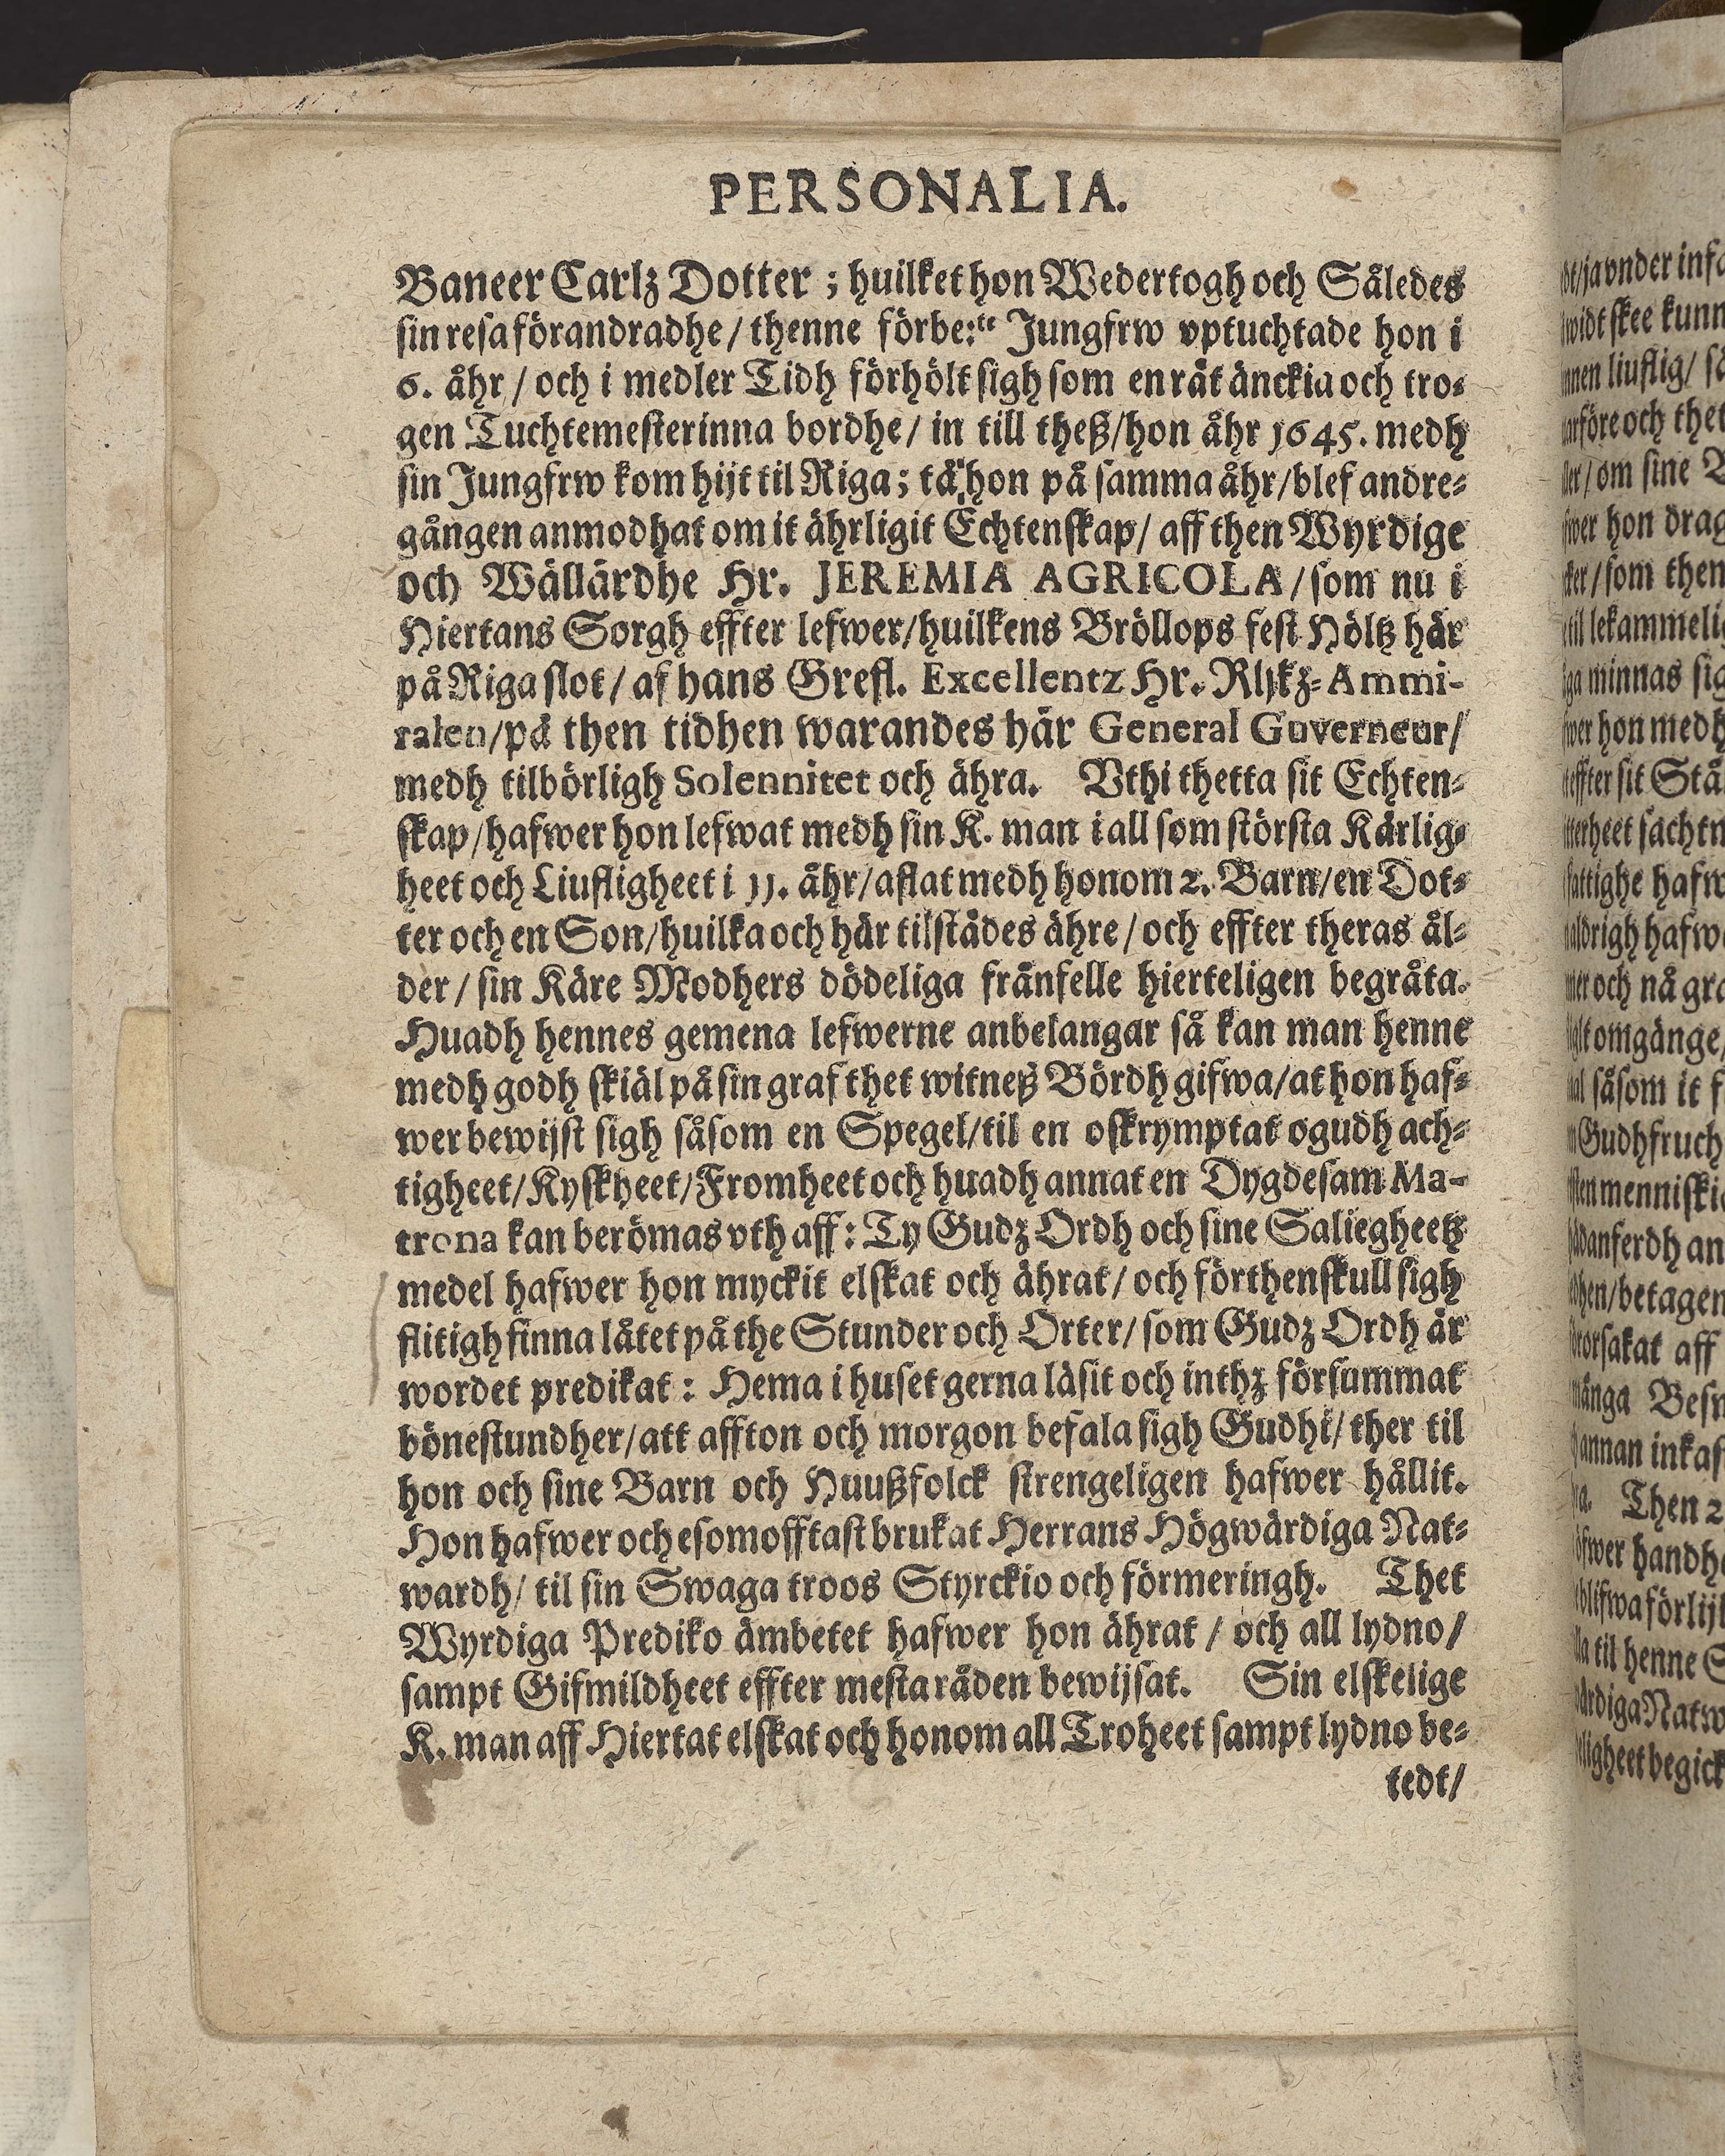 PERSONALIA.
Baneer Carlz Dotter ; huilket hon Wedertogh och Således
sin resa förandradhe / thenne förbe:te Jungfrw vptuchtade hon i
6. åhr / och i medler Tidh förhölt sigh som en rät änckia och tro-
gen Tuchtemesterinna bordhe / in till theß / hon åhr 1645. medh
sin Jungfrw kom hijt til Riga ; tå hon på samma åhr / blef andre-
gången anmodhat om it ährligit Echtenskap / aff then Wyrdige
och Wällärdhe Hr. JEREMIA AGRICOLA / som nu i
Hiertans Sorgh effter lefwer / huilkens Bröllops fest Höltz här
på Riga slot / af hans Grefl. Excellentz Hr. Rijkz-Ammi-
ralen / på then tidhen warandes här General Guverneur /
medh tilbörligh Solennitet och ähra. Vthi thetta sit Echten-
skap / hafwer hon lefwat medh sin K. man i all som största Kärlig-
heet och Liufligheet i 11. åhr / aflat medh honom 2. Barn / en Dot-
ter och en Son / huilka och här tilstädes ähre / och effter theras ål-
der / sin Käre Modhers dödeliga frånfelle hierteligen begråta.
Huadh hennes gemena lefwerne anbelangar så kan man henne
medh godh skiäl på sin graf thet witneß Bördh gifwa / at hon haf-
wer bewijst sigh såsom en Spegel / til en oskrymptat ogudh ach-
tigheet / Kyskheet / Fromheet och huadh annat en Dygdesam Ma-
trona kan berömas vth aff : Ty Gudz Ordh och sine Saliegheetz
medel hafwer hon myckit elskat och ährat / och förthenskull sigh
flitigh finna låtet på the Stunder och Orter / som Gudz Ordh är
wordet predikat : Hema i huset gerna läsit och inthz försummat
bönestundher / att affton och morgon befala sigh Gudhi / ther til
hon och sine Barn och Huußfolck strengeligen hafwer hållit.
Hon hafwer och esomofftast brukat Herrans Högwärdiga Nat-
wardh / til sin Swaga troos Styrckio och förmeringh. Thet
Wyrdiga Prediko ämbetet hafwer hon ährat / och all lydno /
sampt Gifmildheet effter mesta råden bewijsat. Sin elskelige
K. man aff Hiertat elskat och honom all Troheet sampt lydno be-
tedt /